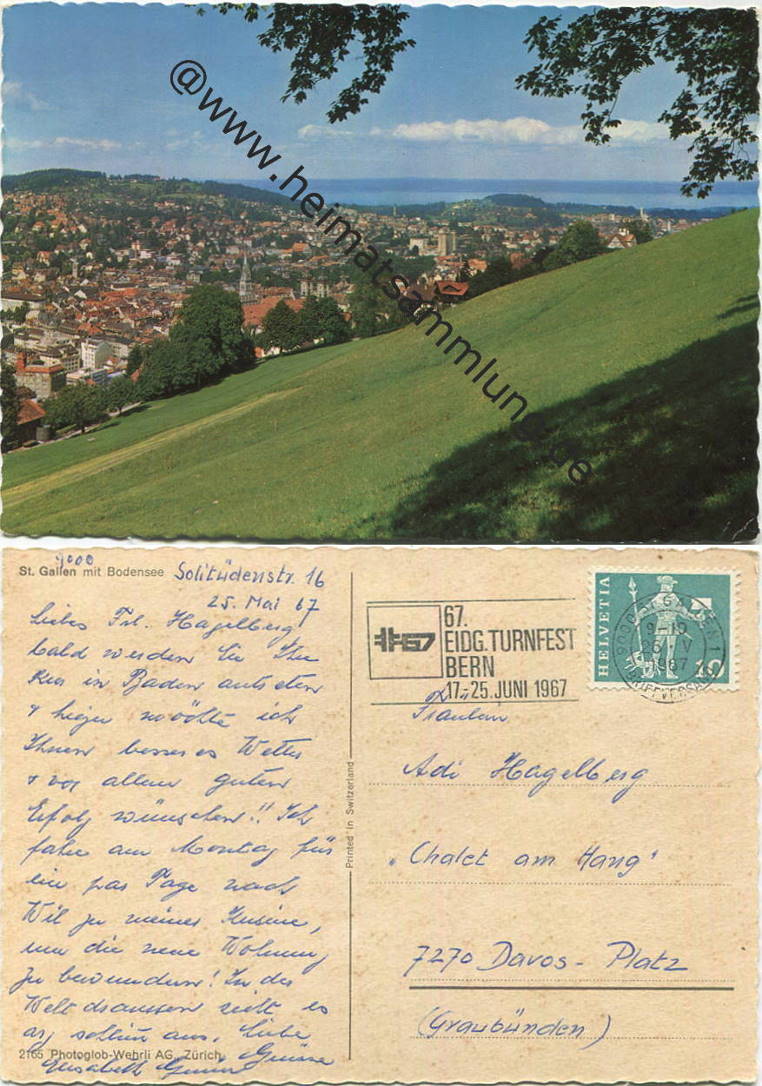 @www.heimatsammlung.de
St. Gallen mit Bodensee
9000
Solitüdenstr. 16
25. Mai 67
Liebes Frl. Hagelberg,
bald werden Sie Ihre
Kur in Baden antreten
& hiezu möchte ich
Ihnen besseres Wetter
& vor allem guten
Erfolg wünschen!! Ich
fahre am Montag für
ein paar Tage nach
Wil zu meiner Kusine,
um die neue Wohnung
zu bewundern! In der
Welt draussen sieht es
arg aus. Liebe
Grüsse
Elisabeth
2165 Photoglob-Wehrli AG, Zürich
Printed in Switzerland
67.
EIDG. TURNFEST
BERN
17.-25. JUNI 1967
67
HELVETIA
10
9000 ST. GALLEN 1
9-10
26 V
1967
BRIEFVERSAND
Fräulein
Adi Hagelberg
"Chalet am Hang"
7270 Davos-Platz
(Graubünden)